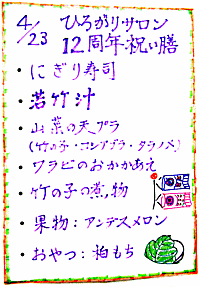 4/23 ひろがりサロン
12周年祝い膳
・にぎり寿司
・若竹汁
・山菜の天プラ
(竹の子・コシアブラ・タラノメ)
・ワラビのおかかあえ
・竹の子の煮物
・果物:アンデスメロン
・おやつ:柏もち